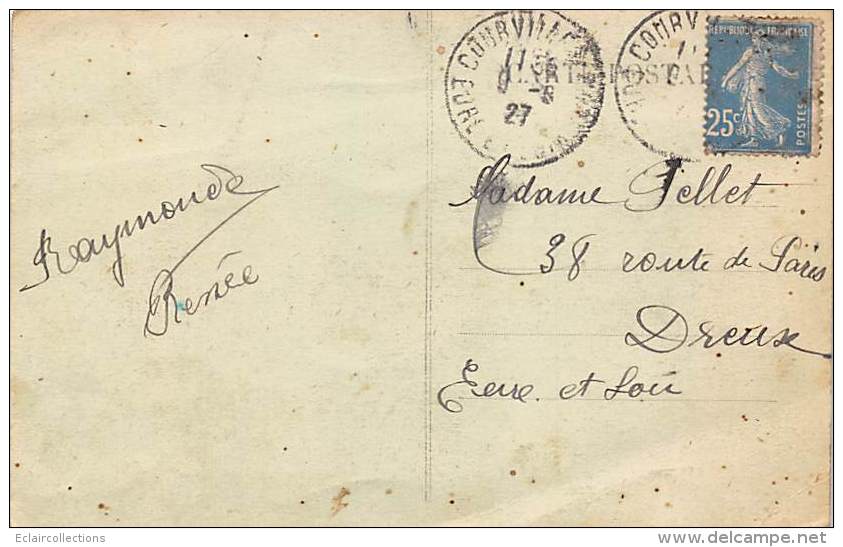 COURVILLE
CARTE POSTALE
11
27
COURV
REPUBLIQUE FRANÇAISE
25c
POSTES
Raymonde
Renée
Madame Pellet
38 route de Paris
Dreux
Eure et Loir
Eclaircollections
www.delcampe.net